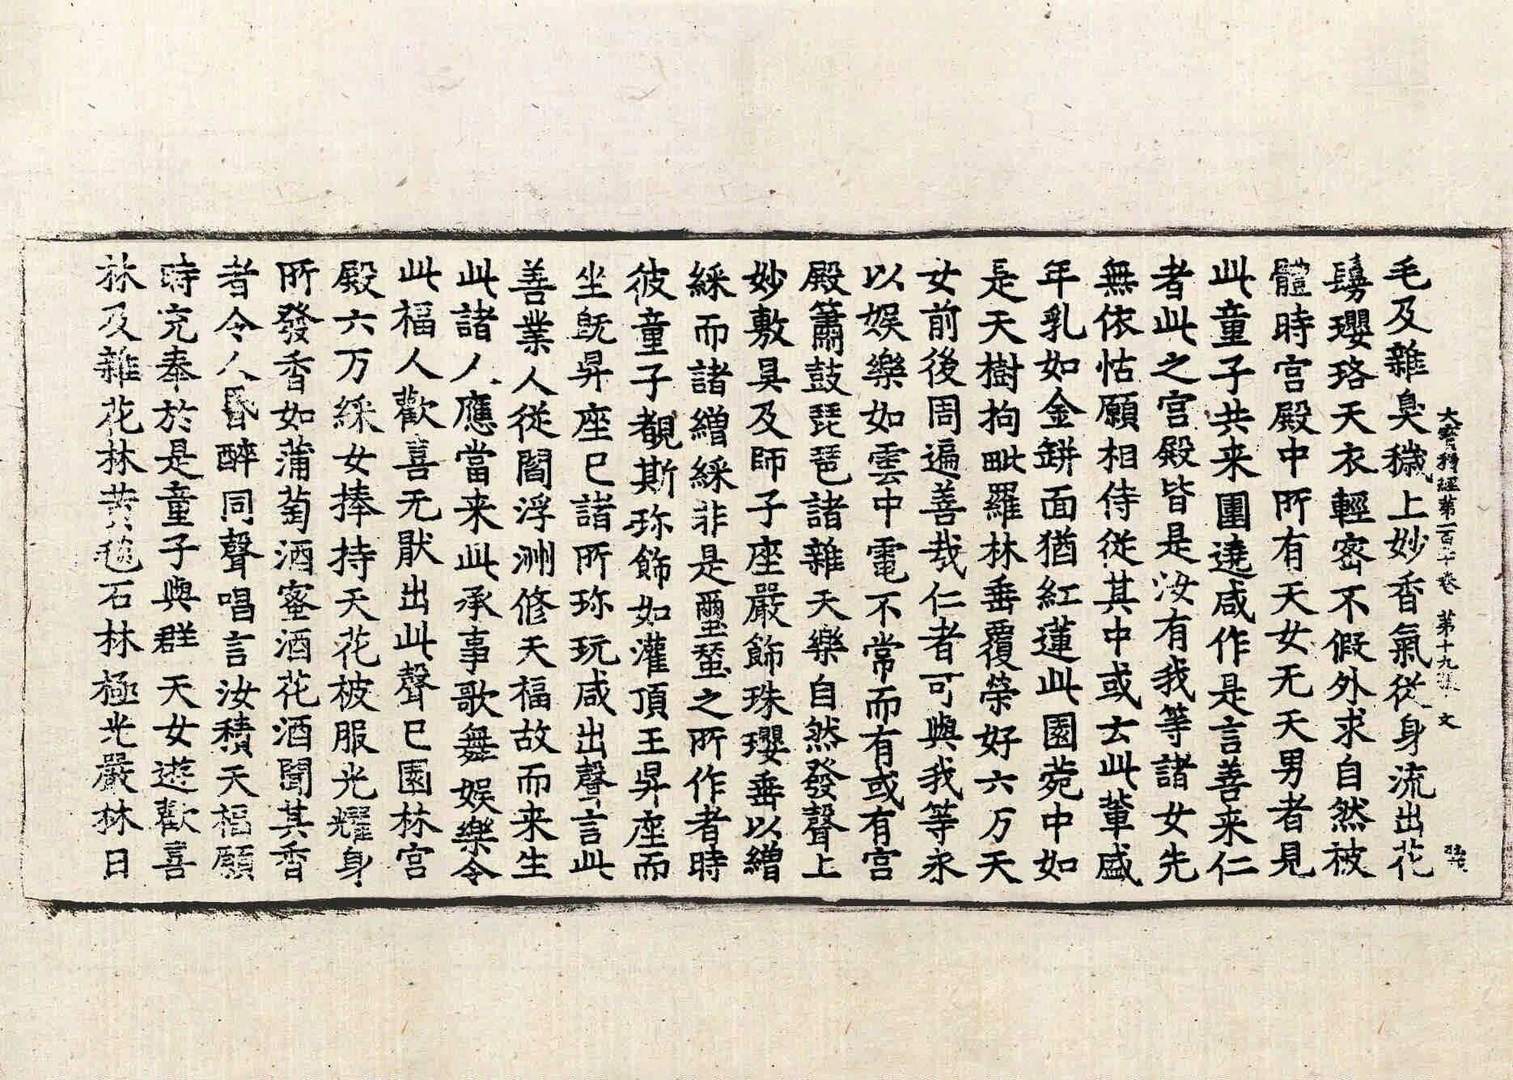 毛及雜臭穢上妙香氣從身流出花
鬘瓔珞天衣輕密不假外求自然被
體時宮殿中所有天女无天男者見
此童子共来圍遶咸作是言善来仁
者此之宮殿皆是汝有我等諸女先
無依怙願相侍從其中或去此輩盛
年乳如金缾面猶紅蓮此園菀中如
是天樹拘毗羅林垂覆榮好六万天
女前後周遍善哉仁者可與我等永
以娛樂如雲中電不常而有或有宮
殿簫鼓琵琶諸雜天樂自然發聲上
妙敷具及師子座嚴飾珠瓔垂以繒
綵而諸繒綵非是璽蠶之所作者時
彼童子覩斯珎飾如灌頂王昇座而
坐旣昇座巳諸所珎玩咸出聲言此
善業人從閻浮洲修天福故而来生
此諸人應當来此承事歌舞娛樂令
此福人歡喜无猒出此聲巳園林宮
殿六万綵女捧持天花被服光耀身
所發香如蒲萄酒蜜酒花酒聞其香
者令人昏醉同聲唱言汝積天福願
時充奉於是童子與群天女遊歡喜
林及雜花林黃毯石林極光嚴林日
大寶積經第一百十卷 第十九張 文